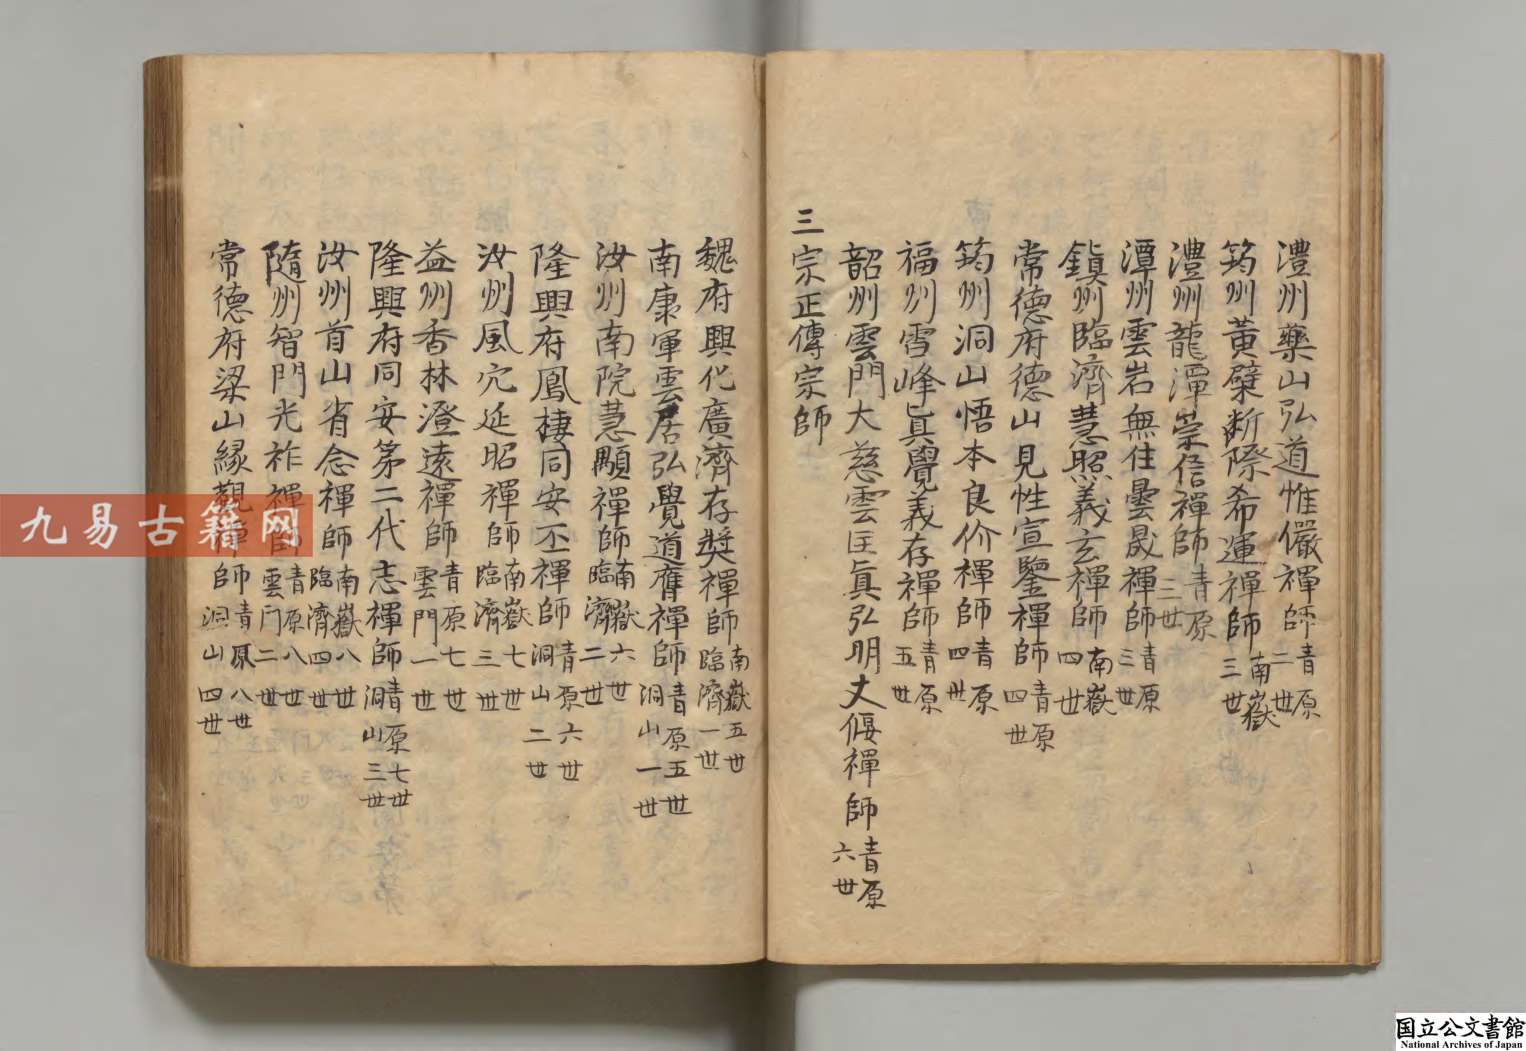 澧州藥山弘道惟儼禪師青原二世
筠州黃檗断際希運禪師南嶽三世
澧州龍潭崇信禪師青原三世
潭州雲岩無住曇晟禪師青原三世
鎮州臨濟慧照義玄禪師南嶽四世
常德府德山見性宣鑒禪師青原四世
筠州洞山悟本良价禪師青原四世
福州雪峰真覺義存禪師青原五世
韶州雲門大慈雲匡真弘明文偃禪師青原六世
三宗正傳宗師
魏府興化廣濟存奬禪師南嶽五世臨濟一世
南康軍雲居弘覺道膺禪師青原五世洞山一世
汝州南院慧顒禪師南嶽六世臨濟二世
隆興府鳳棲同安丕禪師青原六世洞山二世
汝州風穴延昭禪師南嶽七世臨濟三世
益州香林澄遠禪師青原七世雲門一世
隆興府同安第二代志禪師青原七世洞山三世
汝州首山省念禪師南嶽八世臨濟四世
隨州智門光祚禪師青原八世雲门二世
常德府梁山緣觀禪師青原八世洞山四世
九易古籍网
国立公文書館
National Archives of Japan